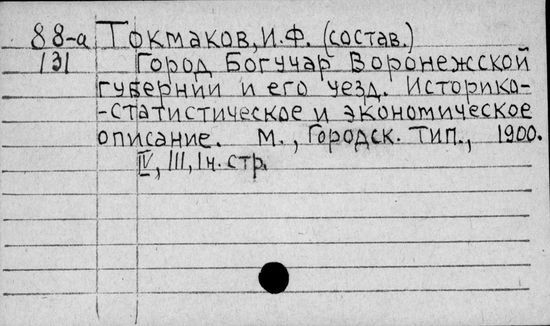 88-а Токмаков, И.Ф. (состав.)
131 Город Богучар Воронежской
губернии и его уезд. Историко-
-статистическое и экономическое
описание. М., Городск. тип., 1900.
IV, III, 1ч. стр.